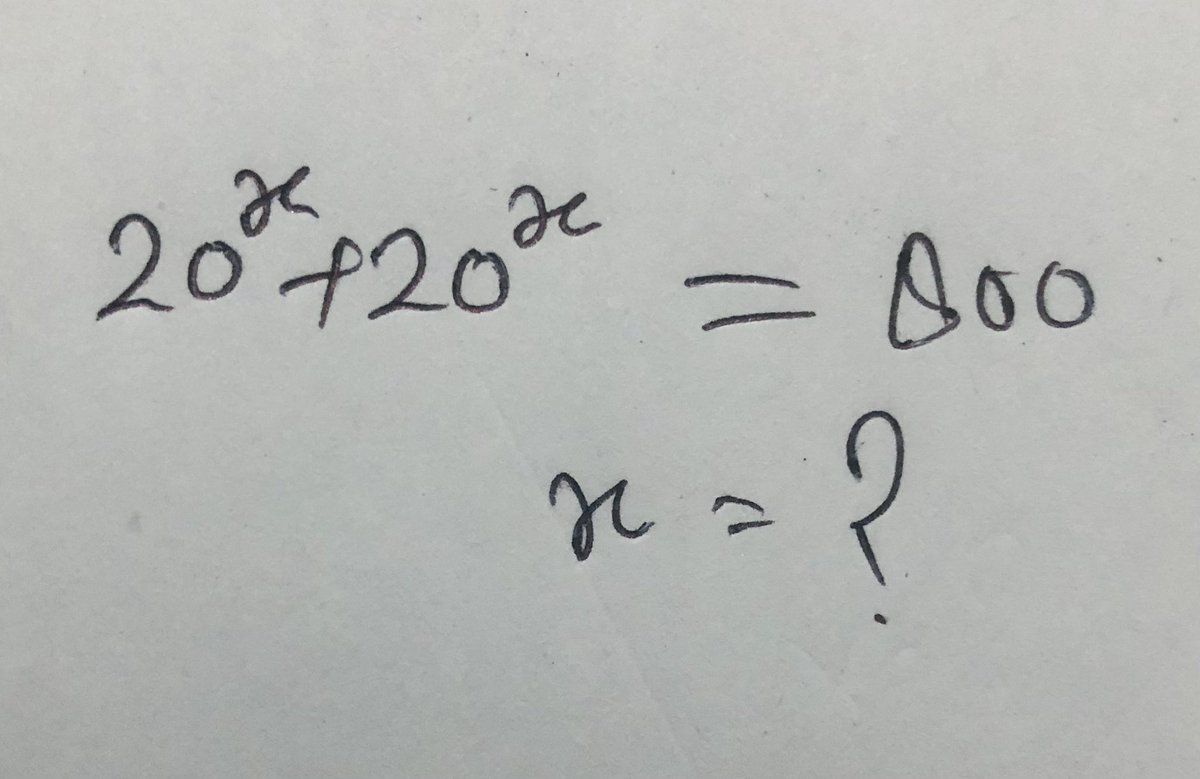 20^x + 20^x = 800
x = ?